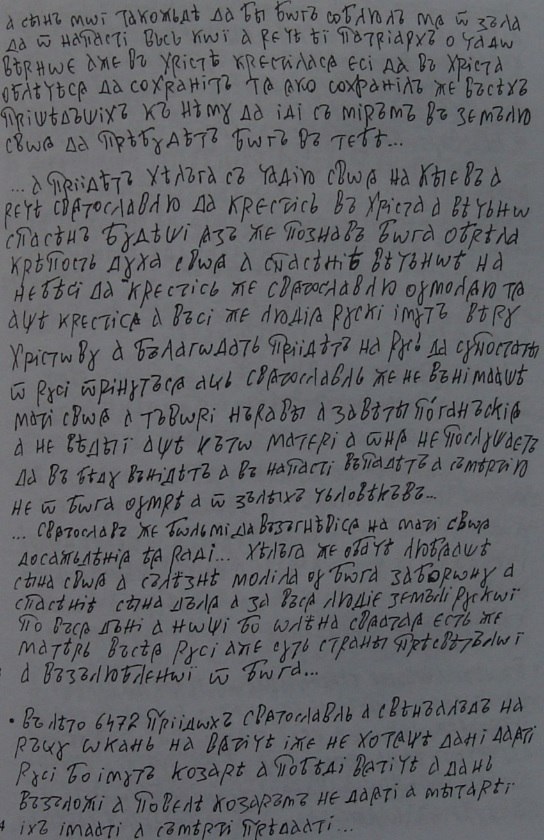 а сѣнъ мѡї такожьдѣ да бы бѡгъ соблюлъ мѧ ѿ зъла
да ѿ напасті вьсь кѡї а речѣ ѣї патріархъ о чадѡ
вѣрнѡе аже въ Хрістѣ крестіласѧ есі да въ Хріста
облѣчѣсѧ да сохранітъ тѧ ѧко сохранілъ же въсѣхъ
прішѣдъшіхъ къ нѣму да іді съ міръмъ въ зѣмълю
своѧ да прѣбудѣтъ бѡгъ въ тебѣ...
...а пріідѣтъ Хѣльга съ чадію своѧ на Кыевъ а
речѣ Свѧтославлю да крестісь въ Хріста а вѣчьнѡ
спасѣнъ будѣші ѧзъ же познавъ бѡга обрѣла
крѣпость духа своѧ а спасѣніѣ вѣчьноѣ на
небѣсі да крестісь же Свѧтославлю оумолѧю тѧ
ащѣ крестісѧ а въсі же людіѧ рускі імутъ вѣру
Хрістову а бълагодать пріідѣтъ на Русь да супостаты
ѿ Русі ѿрінутьсѧ аць Свѧтославль же не вънімаащѣ
маті своѧ а тъворі нъравы а завѣты поганъскіѧ
а не вѣдыі ащѣ къто матері а ѿнѧ не послушаетъ
да въ бѣду вънідѣтъ а въ напасті въпадѣтъ а съмѣртію
не ѿ бѡга оумрѣ а ѿ зълыхъ чьловѣкъвъ...
...Свѧтославъ же больмі да възъгнѣвісѧ на маті своѧ
досаждѣніѧ еѧ раді... Хѣльга же обачѣ любѧащѣ
сына своѧ а сълѣзнѣ моліла оу бѡга заборону а
спасѣніѣ сына дълѧ а за въсѧ людіе зѣмълі рускої
по въсѧ дьні а нощі бо Ѡлѣна свѧтаѧ есть же
матѣрь въсѣѧ Русі аже суть страны прѣсвѣтълої
а възълюблѣнної ѿ бѡга...
• Въ лѣто 6472 пріідохъ Свѧтославль а Свѣнъалъдъ на
рѣцу Ѡкань на вѧтічѣ іже не хотѧщѣ дані даѧті
Русі бо імутъ козарѣ а побѣді вѧтічѣ а дань
възъложі а повелѣ козаръмъ не даѧті а мытарѣі
іхъ імааті а съмѣрті прѣдааті...